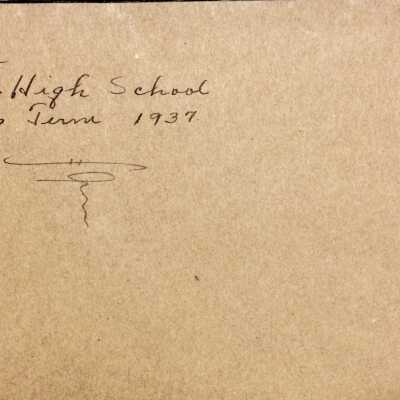 High School
Term 1937